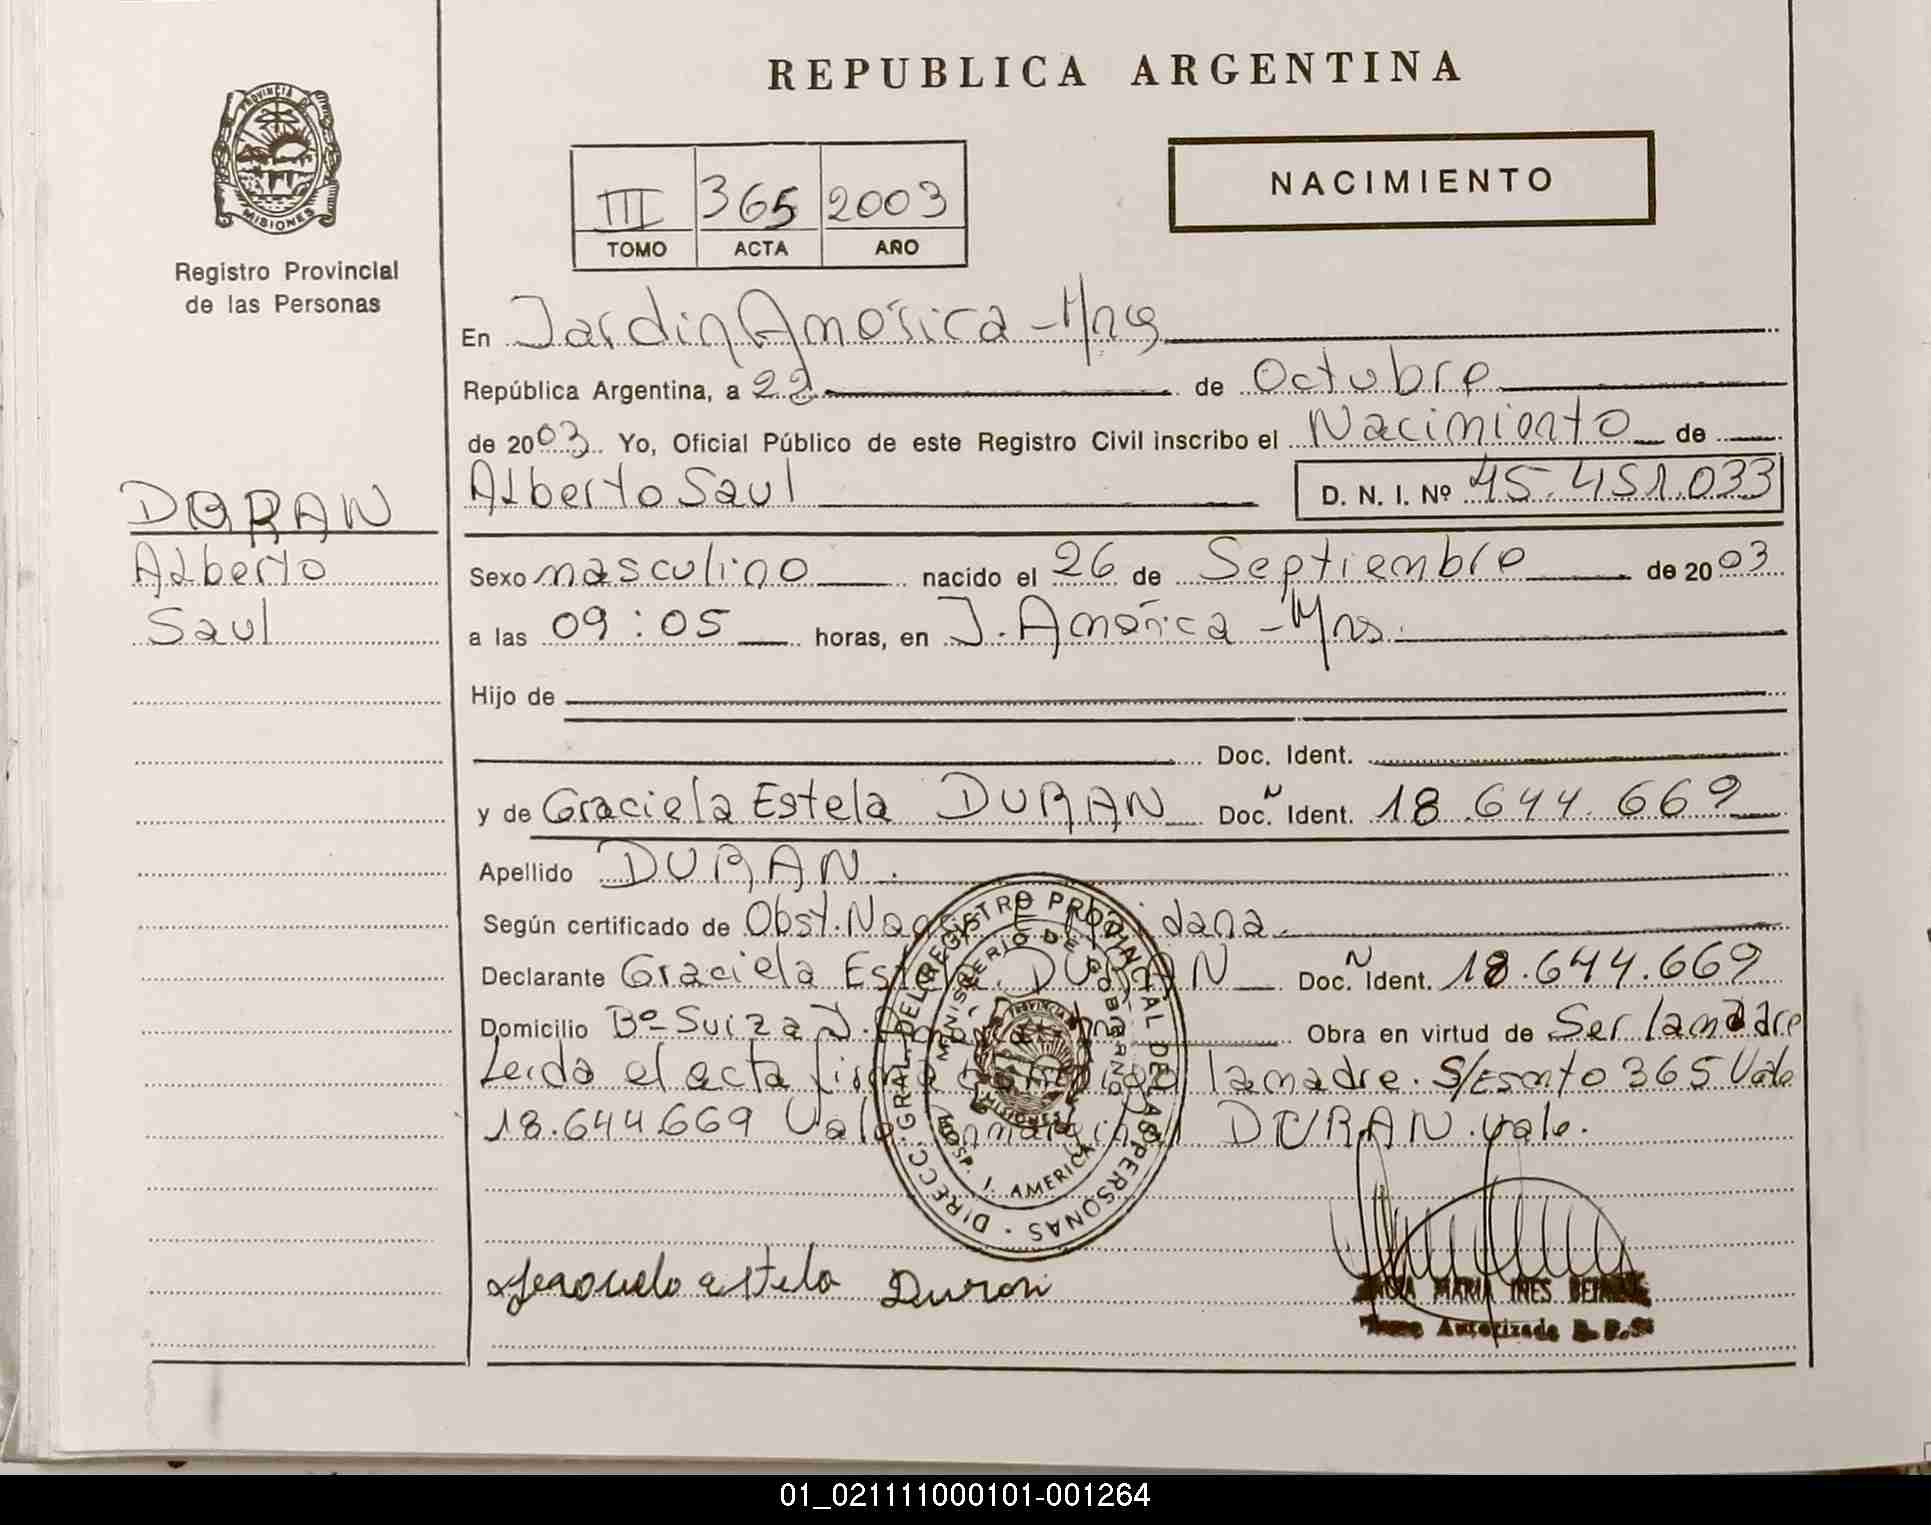 REPUBLICA ARGENTINA
PROVINCIA DE
MISIONES
Registro Provincial
de las Personas
III 365 2003
TOMO ACTA AÑO
NACIMIENTO
En Jardin América - Mnes
República Argentina, a 22 de Octubre
de 2003. Yo, Oficial Público de este Registro Civil inscribo el Nacimiento de
Alberto Saul D. N. I. Nº 45.451.033
DURAN
Alberto
Saul
Sexo masculino nacido el 26 de Septiembre de 2003
a las 09:05 horas, en J. América - Mns.
Hijo de
Doc. Ident.
y de Graciela Estela DURAN Doc. N Ident. 18.644.669
Apellido DURAN.
Según certificado de Obst.
Declarante Graciela Estela DURAN Doc. N Ident. 18.644.669
Domicilio Bº Suiza J. Obra en virtud de Ser la madre
Leida el acta firma la madre. S/Esmto 365 Vale
18.644669 Vale DURAN. vale.
DIRECC. GRAL. DEL REGISTRO PROVINCIAL DE LAS PERSONAS
MINISTERIO DE GOBIERNO
PROVINCIA
MISIONES
HOSP. J. AMERICA
Graciela estela Duran
MARIA INES
Autorizada
01_021111000101-001264